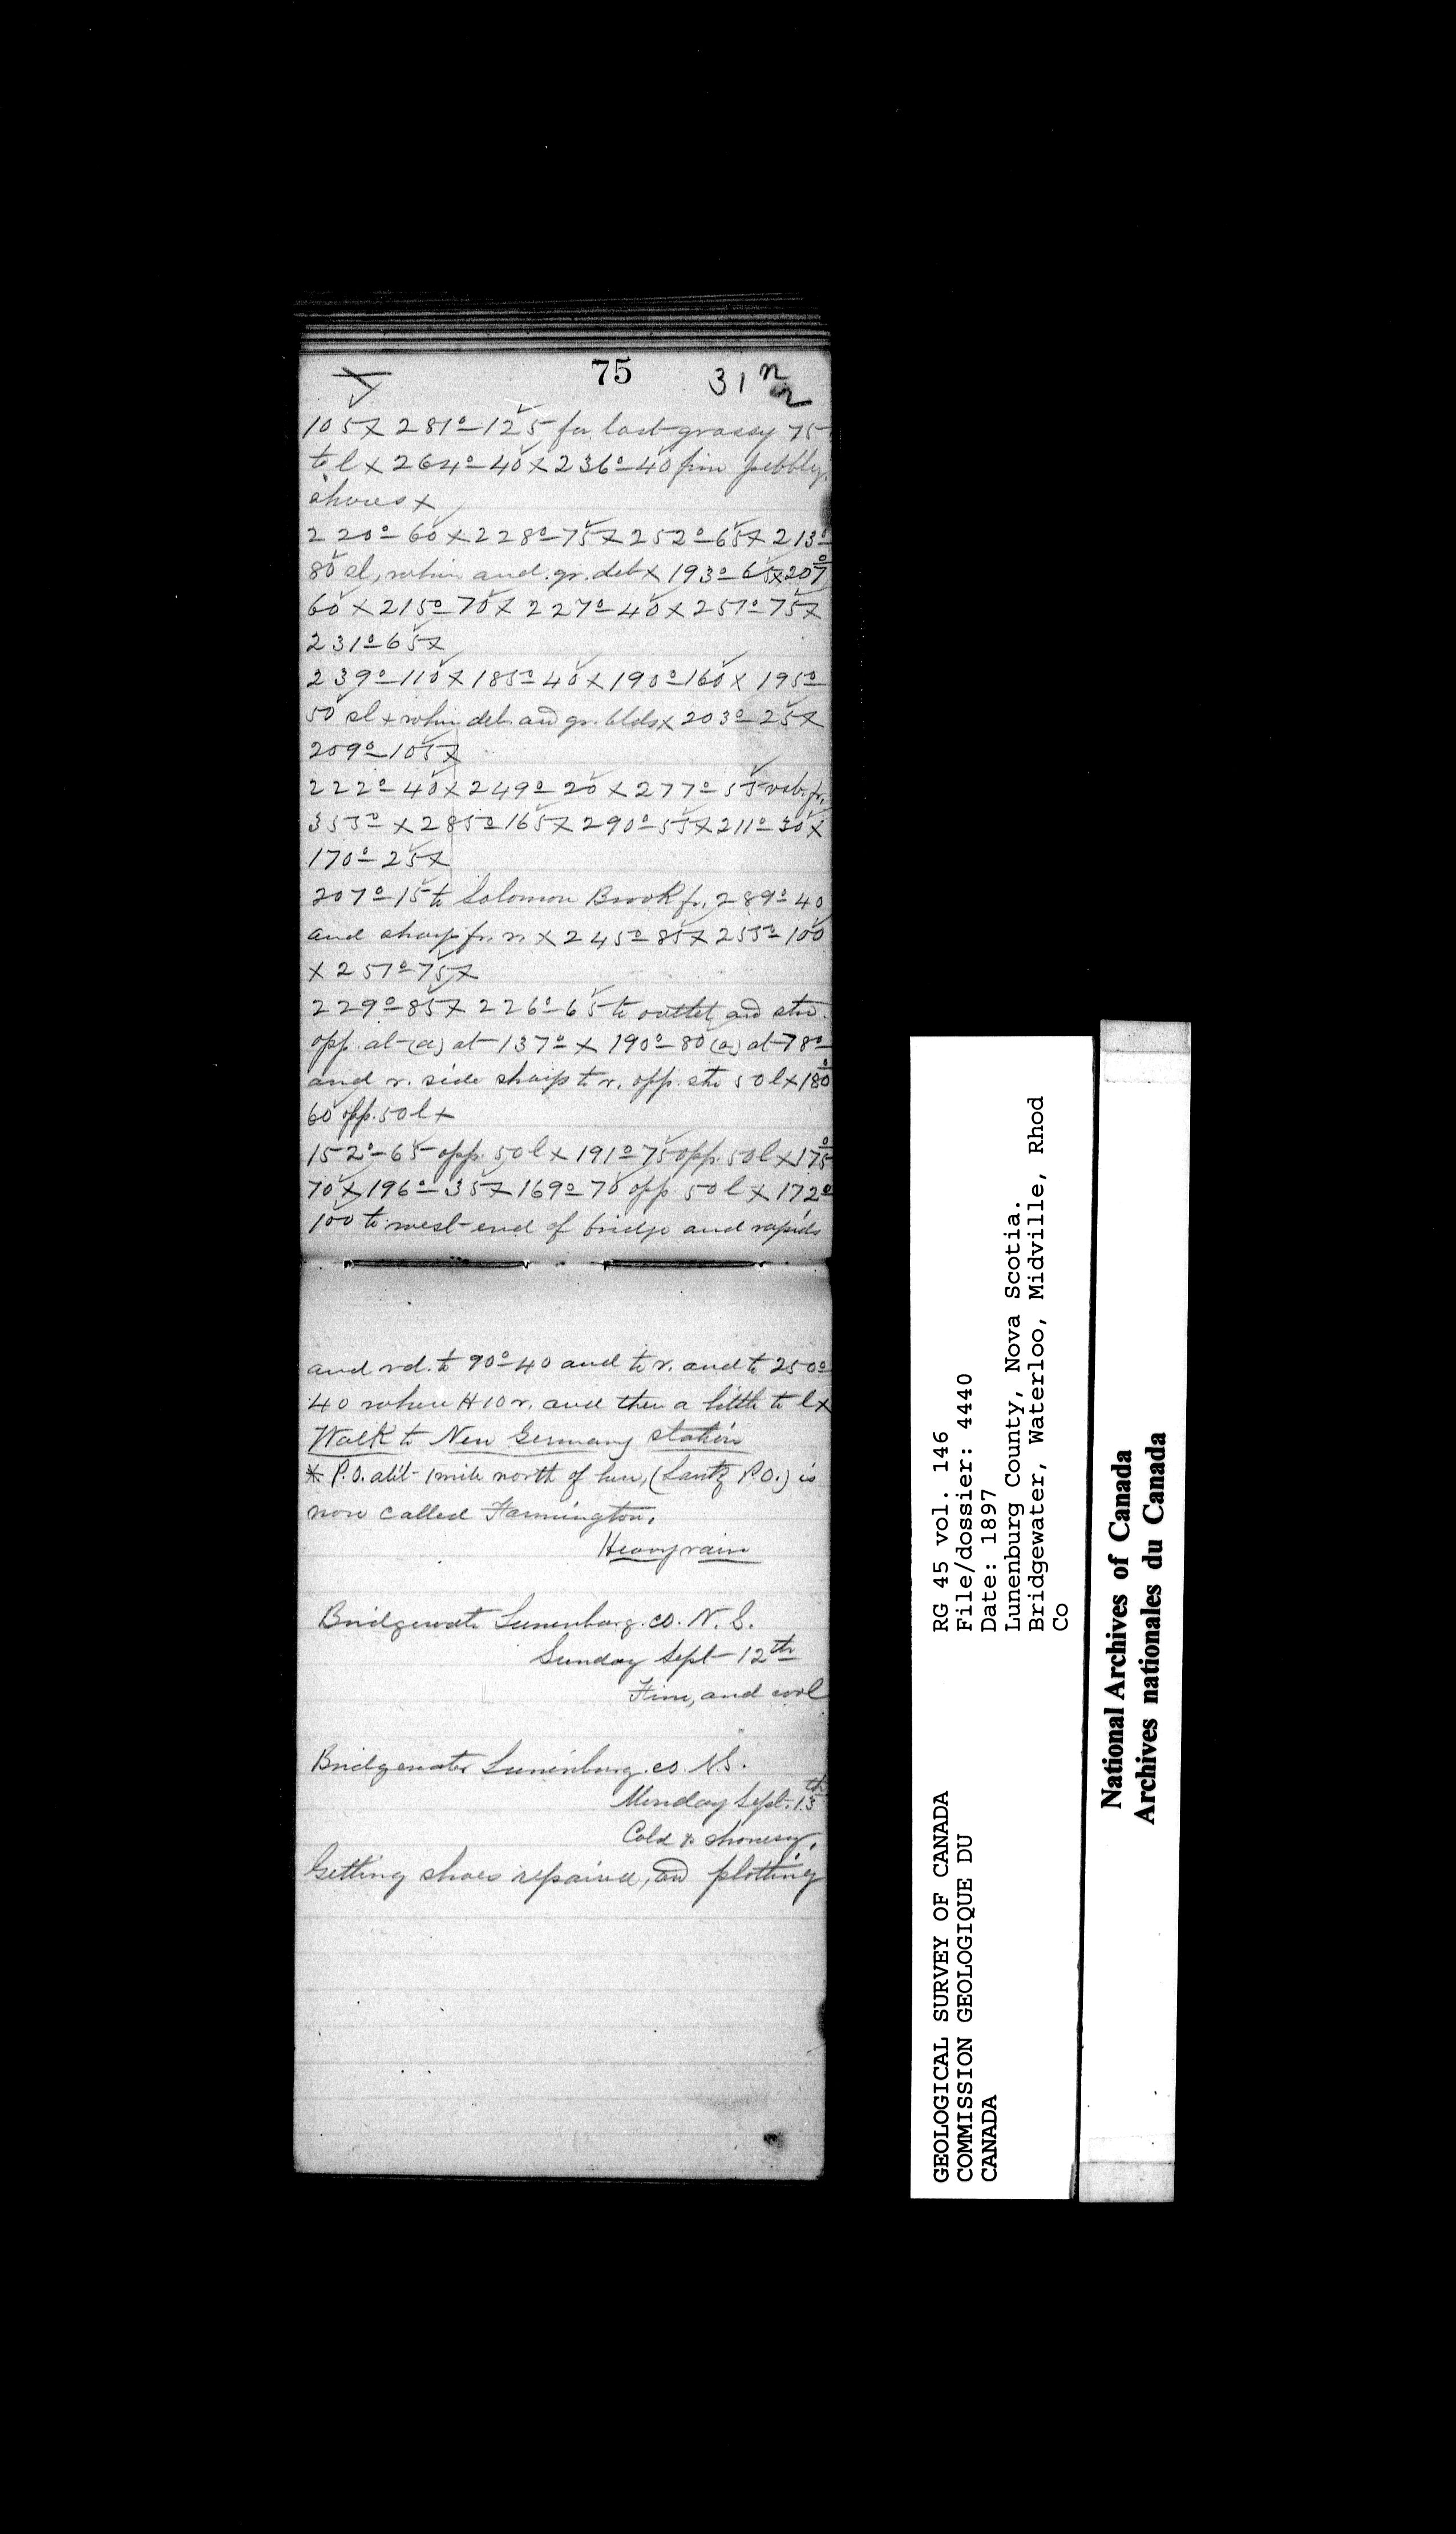 75
31
105 x 281° - 125 for last grassy 75
to l x 264° - 40 x 236° - 40 fine pebbly
shores x
220° - 60 x 228° - 75 x 252° - 65 x 213°
80 sl, whin and gr. deb x 193° - 65 x 207°
60 x 215° - 70 x 227° - 40 x 257° - 75 x
231° - 65 x
239° - 110 x 185° - 40 x 190° - 160 x 195°
50 sl + whin deb. and gr. blds x 203° - 25 x
209° - 105 x
222° - 40 x 249° - 20 x 277° - 55 fr.
355° x 285° - 165 x 290° - 55 x 211° - 30 x
170° - 25 x
207° - 15 to Solomon Brook fr. 289° - 40
and sharp fr. r. x 245° - 85 x 255° - 100
x 257° - 75 x
229° - 85 x 226° - 65 to outlet, and str.
opp. at (a) at 137° x 190° - 80 (a) at 78°
and r. side sharp to r. opp. str 50 l x 180°
60 opp. 50 l x
152° - 65 opp. 50 l x 191° - 75 opp. 50 l x 175°
70 x 196° - 35 x 169° - 70 opp 50 l x 172°
100 to west end of bridge and rapids
and rd. to 90° - 40 and to r. and to 250°
40 where H 10 r. and then a little to l x
Walk to New Germany station
* P.O. abt 1 mile north of here, (Lantz P.O.) is
now called Farmington.
Heavy rain
Bridgewater Lunenburg. co. N. S.
Sunday Sept 12th
Fine, and cool
Bridgewater Lunenburg. co. N.S.
Monday Sept. 13th
Cold & showery.
Getting shoes repaired, and plotting
GEOLOGICAL SURVEY OF CANADA
COMMISSION GEOLOGIQUE DU
CANADA
RG 45 vol. 146
File/dossier: 4440
Date: 1897
Lunenburg County, Nova Scotia.
Bridgewater, Waterloo, Midville, Rhod
Co
National Archives of Canada
Archives nationales du Canada